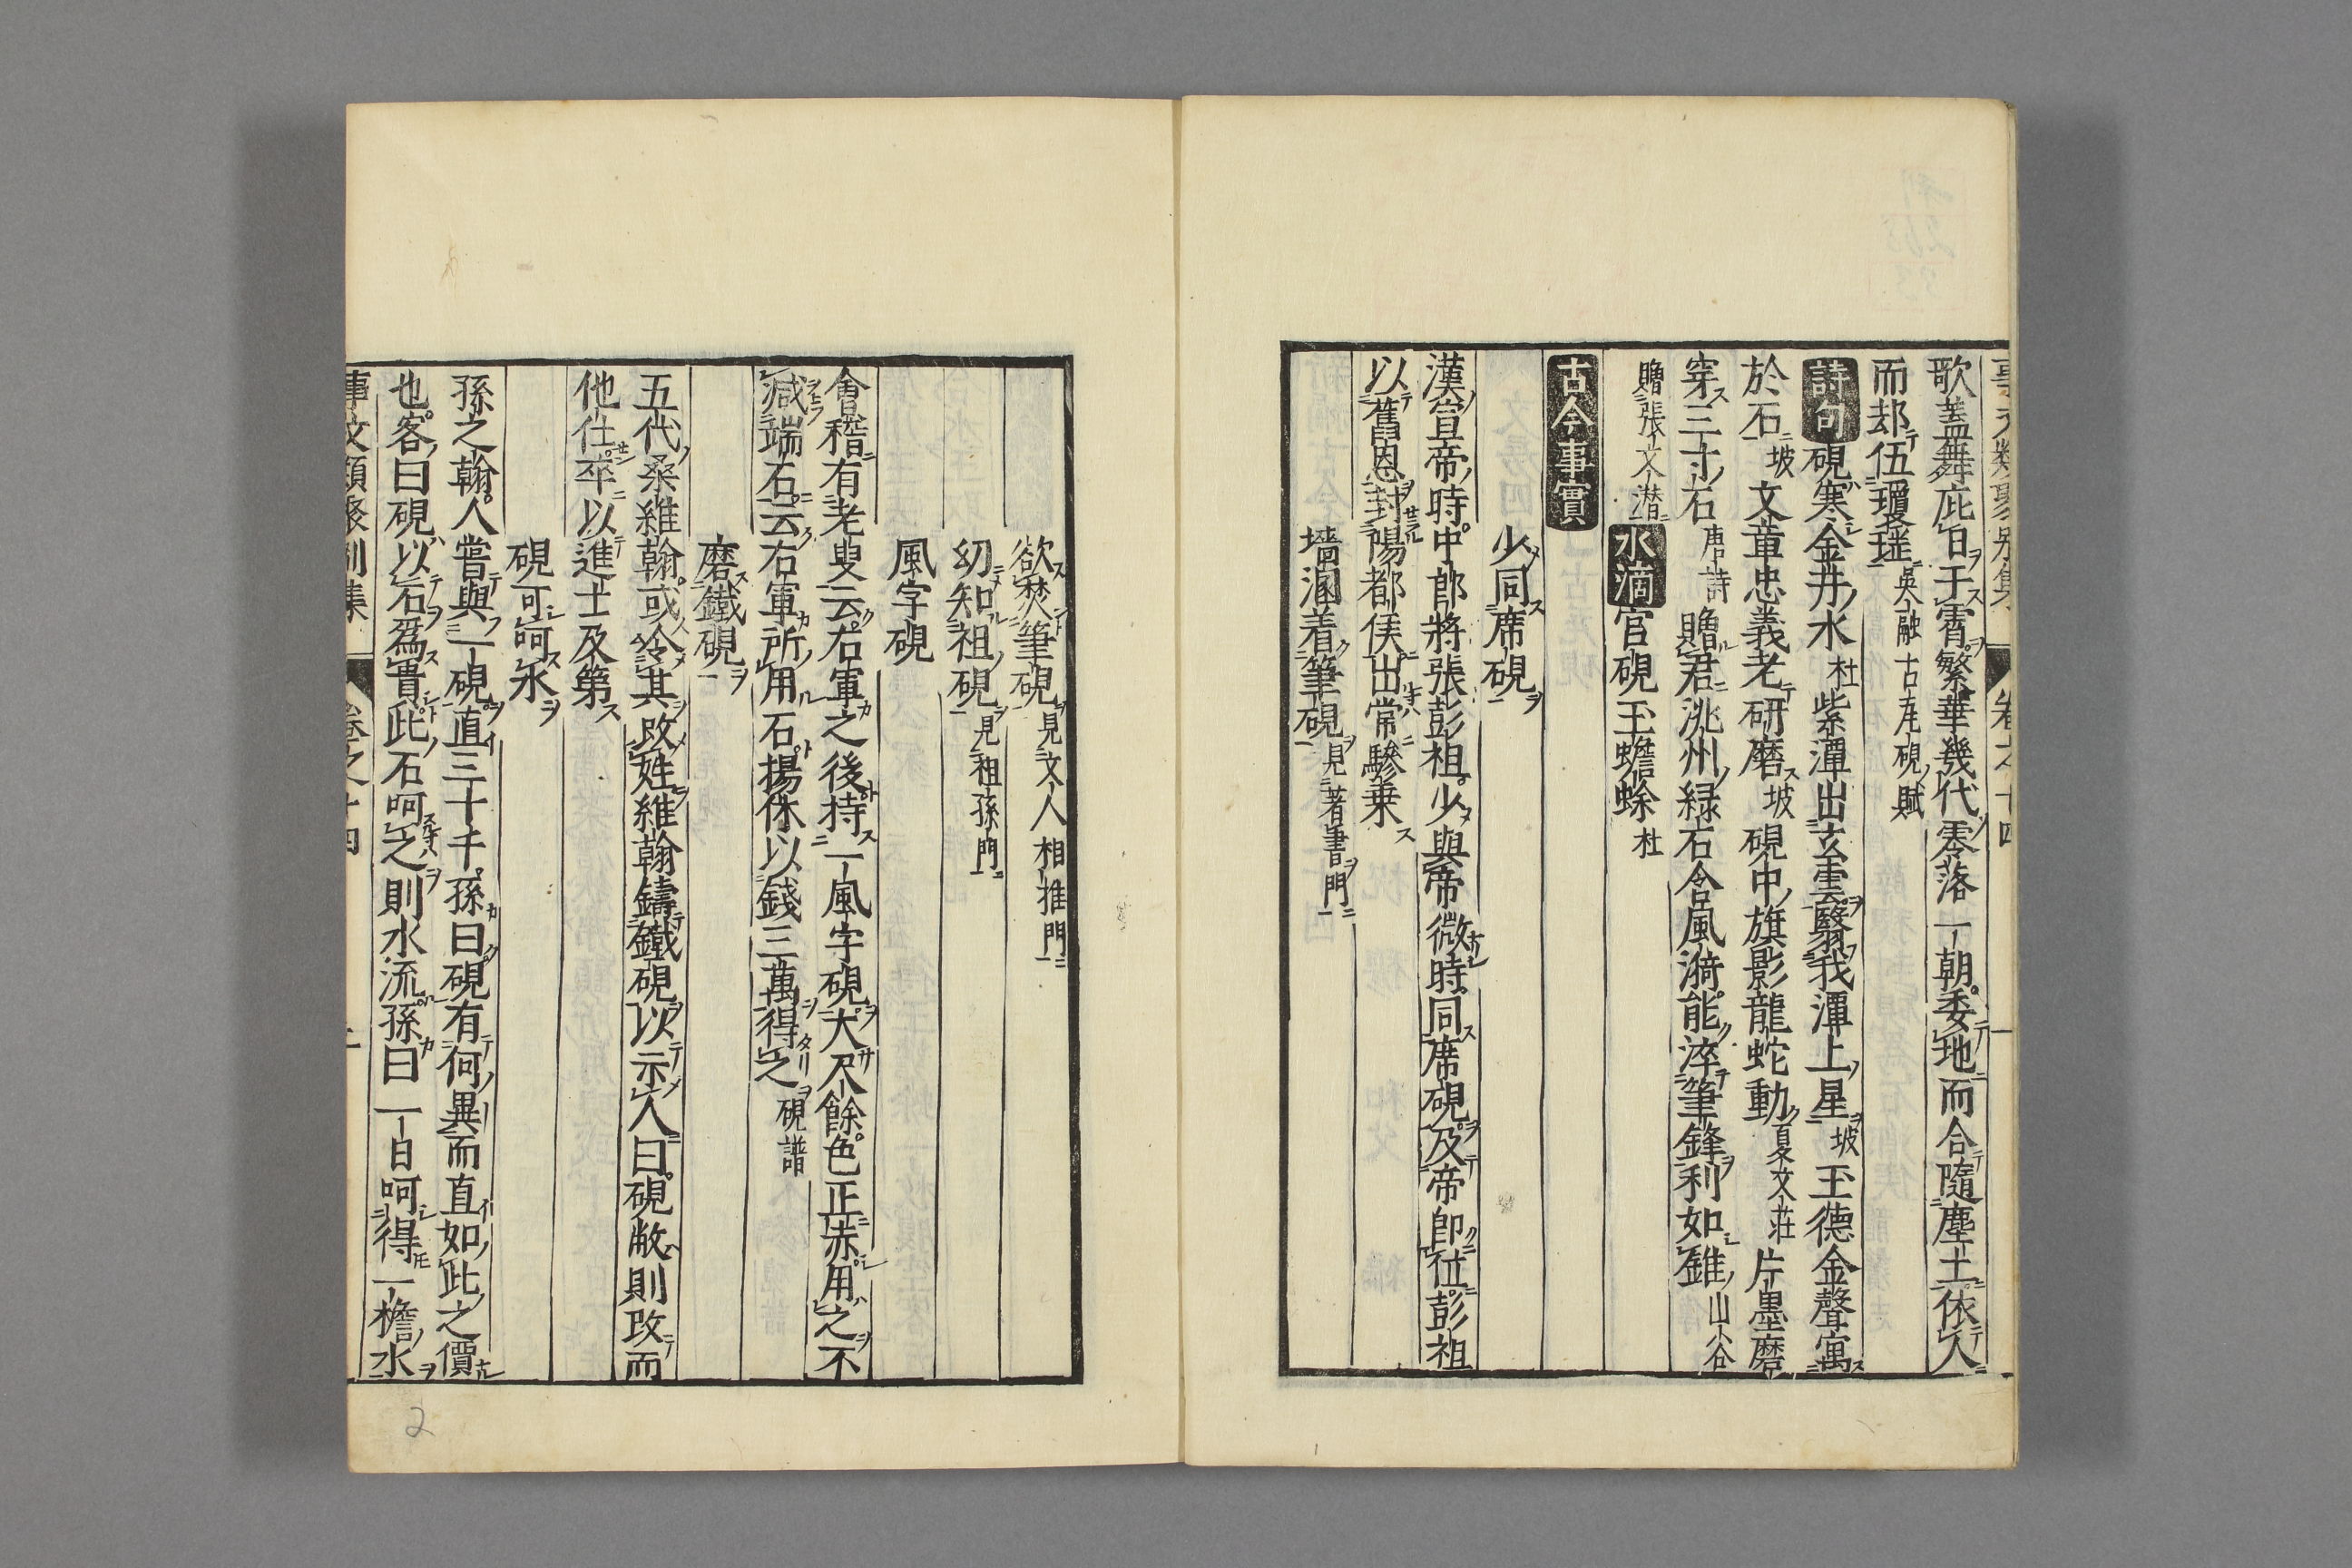 事文類聚別集 卷之十四 一
歌蓋舞庇白于霄繁華幾代零落一朝委地而合隨塵土依人
而却伍瓊瑳吳融古瓦硯賦
詩句硯寒金井水杜紫潭出玄雲翳我潭上星坡玉德金聲寓
於石坡文章忠義老研磨坡硯中旗影龍蛇動夏文莊片墨磨
穿三寸石唐詩贈君洮州緑石含風漪能淬筆鋒利如錐山谷
贈張文潜水滴官硯玉蟾蜍杜
古今事實
少同席硯
漢宣帝時中郎將張彭祖少與帝微時同席硯及帝即位彭祖
以舊恩封陽都侯出常驂乗
墻溷着筆硯見著書門
欲焚筆硯見文人相推門
幼知祖硯見祖孫門
風字硯
會稽有老叟云右軍之後持一風字硯大尺餘色正赤用之不
減端石云右軍所用石揚休以錢三萬得之硯譜
磨鐵硯
五代桑維翰或令其改姓維翰鑄鐵硯以示人曰硯敝則改而
他仕卒以進士及第
硯可呵水
孫之翰人嘗與一硯直三十千孫曰硯有何異而直如此之價
也客曰硯以石爲貴此石呵之則水流孫曰一日呵得一檐水
事文類聚別集 卷之十四 二
2